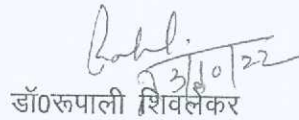 13/10/22
डॉ0रूपाली शिवलेकर